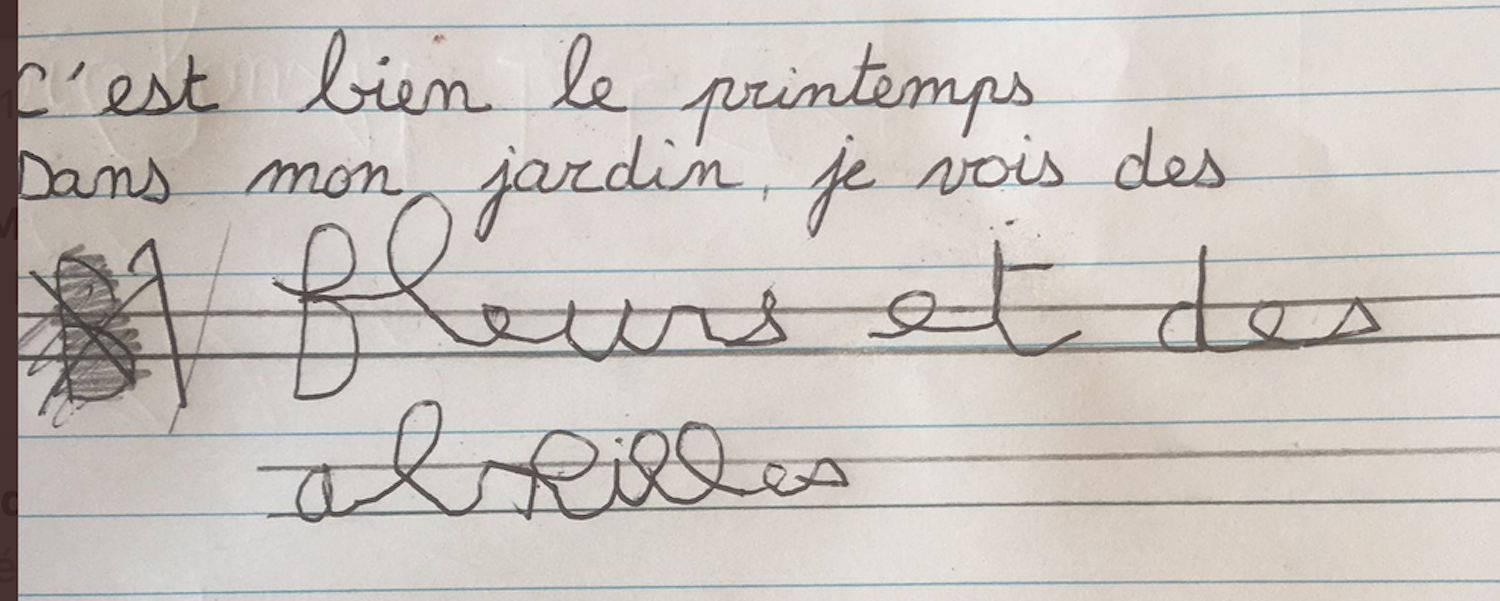 C'est bien le printemps
Dans mon jardin, je vois des
1/ fleurs et des
abeilles